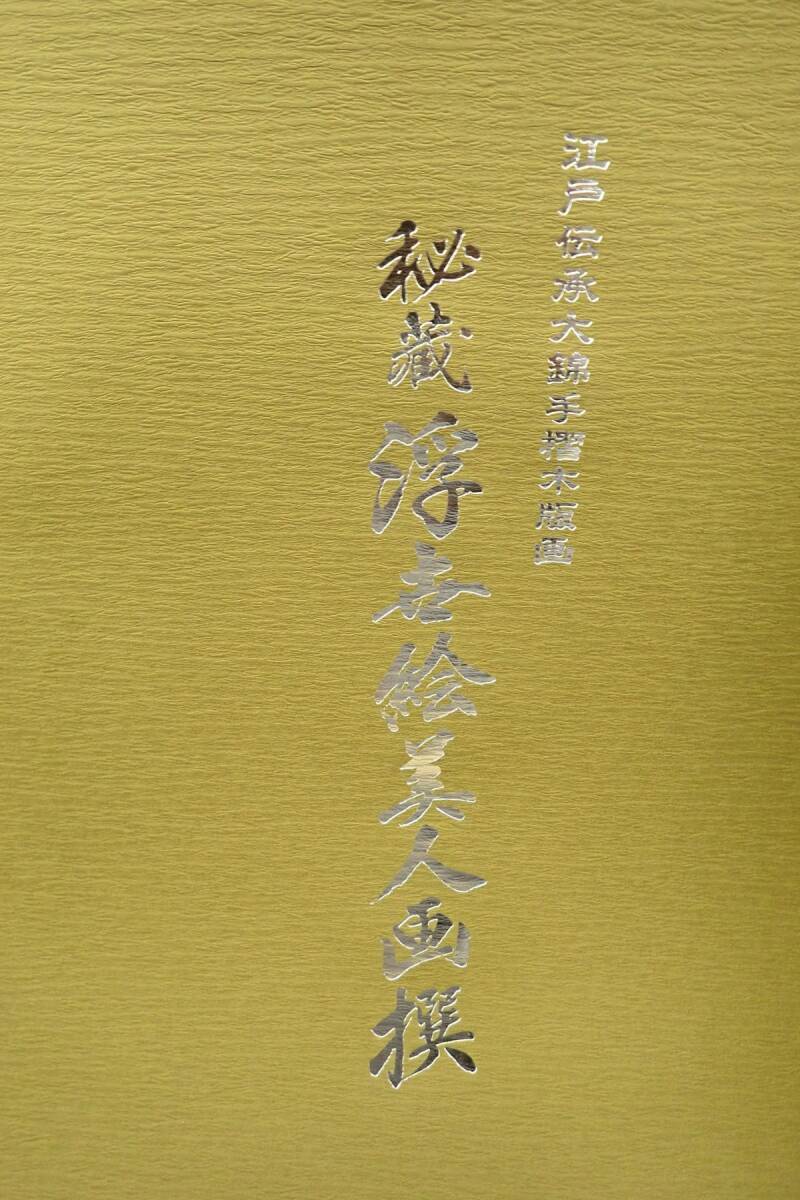 江戸伝承大錦手摺木版画
秘蔵浮世絵美人画撰